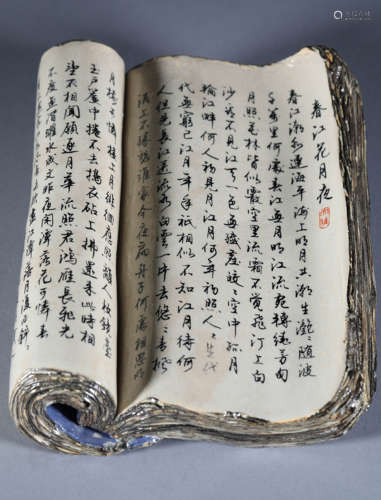 春江花月夜
春江潮水連海平海上明月共潮生灔灔隨波
千萬里何處春江無月明江流宛轉繞芳甸
月照花林皆似霰空里流霜不覺飛汀上白
沙看不見江天一色無纖塵皎皎空中孤月
輪江畔何人初見月江月何年初照人人生代
代無窮已江月年年祇相似不知江月待何
人但見長江送流水白雲一片去悠悠青楓
浦上不勝愁誰家今夜扁舟子何處相思明
月樓可憐樓上月徘徊應照離人妝鏡臺
玉戶簾中捲不去搗衣砧上拂還來此時相
望不相聞願逐月華流照君鴻雁長飛光
不度魚龍潛躍水成文昨夜閑潭夢落花可憐春
江潭落月復西斜